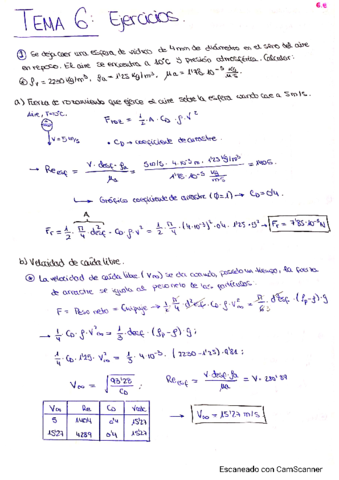 6.1
TEMA 6: Ejercicios.
① Se deja caer una esfera de vidrio de 4 mm de diámetro en el seno del aire
en reposo. El aire se encuentra a 10°C y presión atmosférica. Calcular:
ρr = 2250 kg/m³, ρa = 1'25 kg/m³, μa = 1'78·10⁻⁵ kg/m·s
a) Fuerza de rozamiento que ejerce el aire sobre la esfera cuando cae a 5 m/s.
Aire, T=10°C.
Froz = 1/2 · A · CD · ρ · V²
v = 5 m/s
• CD → coeficiente de arrastre.
→ Re esf = V · desf · ρa / μa = 5 m/s · 4·10⁻³ m · 1'25 kg/m³ / 1'78·10⁻⁵ kg/m·s = 1405.
→ Gráfica coeficiente de arrastre (φ=1) → CD = 0'4.
A
Fr = 1/2 · π/4 · d²esf · CD · ρ · v² = 1/2 · π/4 · (4·10⁻³)² · 0'4 · 1'25 · 5² → Fr = 7'85·10⁻⁵ N
b) Velocidad de caída libre.
La velocidad de caída libre (V∞) se da cuando, pasado un tiempo, la fuerza
de arrastre se iguala al peso neto de las partículas.
F = Peso neto - Empuje → 1/2 · π/4 · d²esf · CD · ρ · V²∞ = π/6 · d³esf · (ρp - ρ) · g
→ 1/4 · CD · ρ · V²∞ = 1/3 · desf · (ρp - ρ) · g ;
1/4 CD · 1'25 · V²∞ = 1/3 · 4·10⁻³ · (2250 - 1'25) · 9'81 ;
V∞ = √(93'28 / CD) ; Re esf = v · desf · ρa / μa = V · 280'89
V∞ Re CD Vcalc
5 1404 0'4 15'27
15'27 4289 0'4 15'27
→ V∞ = 15'27 m/s.
Escaneado con CamScanner